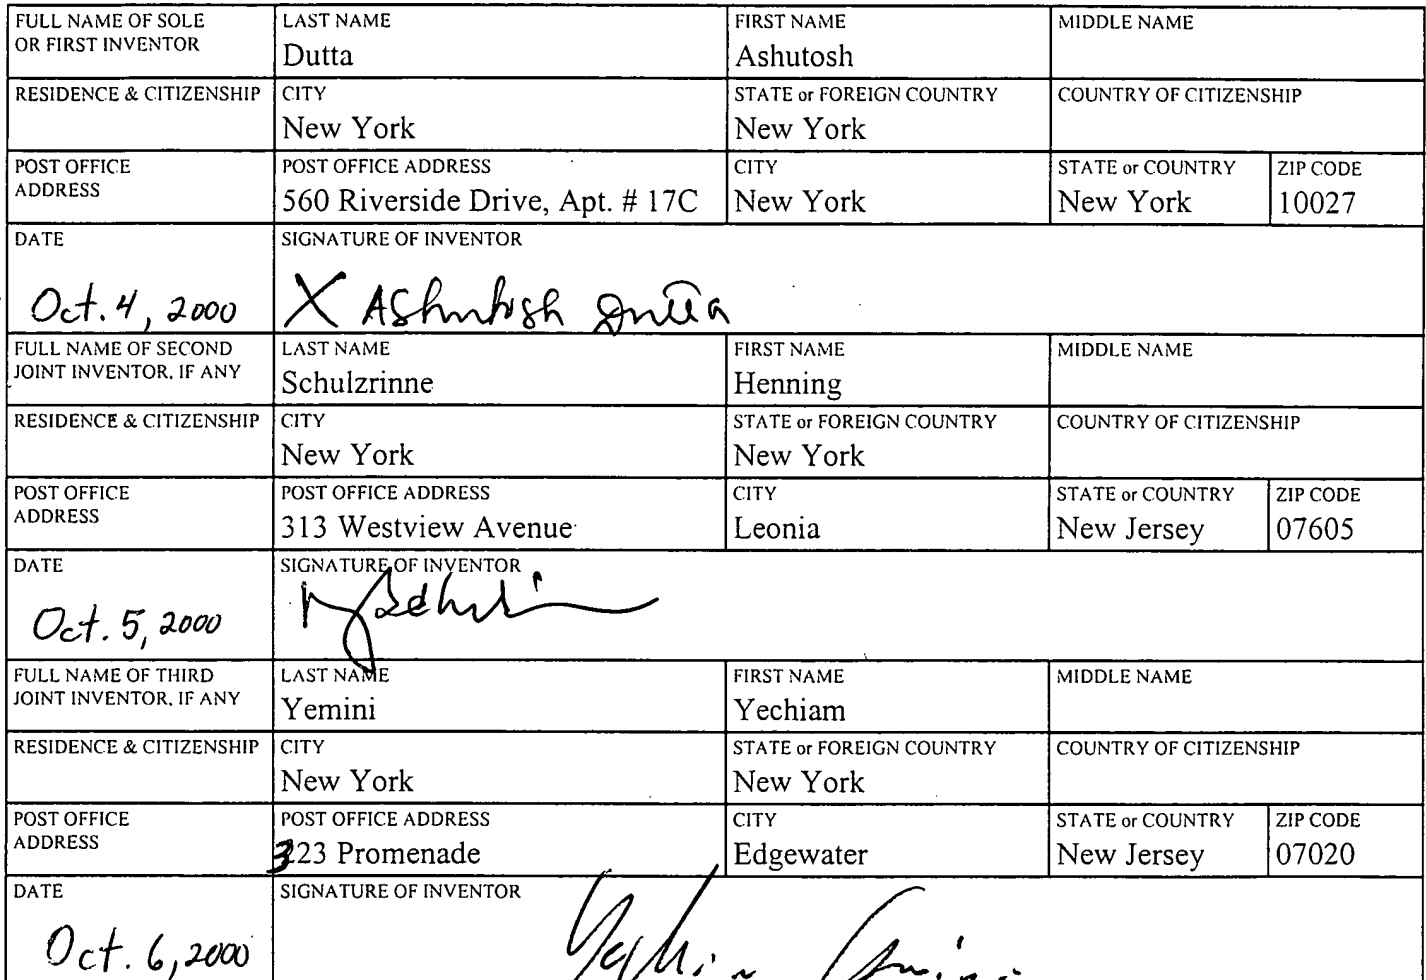 FULL NAME OF SOLE OR FIRST INVENTOR
LAST NAME
Dutta
FIRST NAME
Ashutosh
MIDDLE NAME
RESIDENCE & CITIZENSHIP
CITY
New York
STATE or FOREIGN COUNTRY
New York
COUNTRY OF CITIZENSHIP
POST OFFICE
ADDRESS
POST OFFICE ADDRESS
560 Riverside Drive, Apt. # 17C
CITY
New York
STATE or COUNTRY
New York
ZIP CODE
10027
DATE
Oct. 4, 2000
SIGNATURE OF INVENTOR
X Ashutosh Dutta
FULL NAME OF SECOND
JOINT INVENTOR, IF ANY
LAST NAME
Schulzrinne
FIRST NAME
Henning
MIDDLE NAME
RESIDENCE & CITIZENSHIP
CITY
New York
STATE or FOREIGN COUNTRY
New York
COUNTRY OF CITIZENSHIP
POST OFFICE
ADDRESS
POST OFFICE ADDRESS
313 Westview Avenue
CITY
Leonia
STATE or COUNTRY
New Jersey
ZIP CODE
07605
DATE
Oct. 5, 2000
SIGNATURE OF INVENTOR
FULL NAME OF THIRD
JOINT INVENTOR, IF ANY
LAST NAME
Yemini
FIRST NAME
Yechiam
MIDDLE NAME
RESIDENCE & CITIZENSHIP
CITY
New York
STATE or FOREIGN COUNTRY
New York
COUNTRY OF CITIZENSHIP
POST OFFICE
ADDRESS
POST OFFICE ADDRESS
323 Promenade
CITY
Edgewater
STATE or COUNTRY
New Jersey
ZIP CODE
07020
DATE
Oct. 6, 2000
SIGNATURE OF INVENTOR